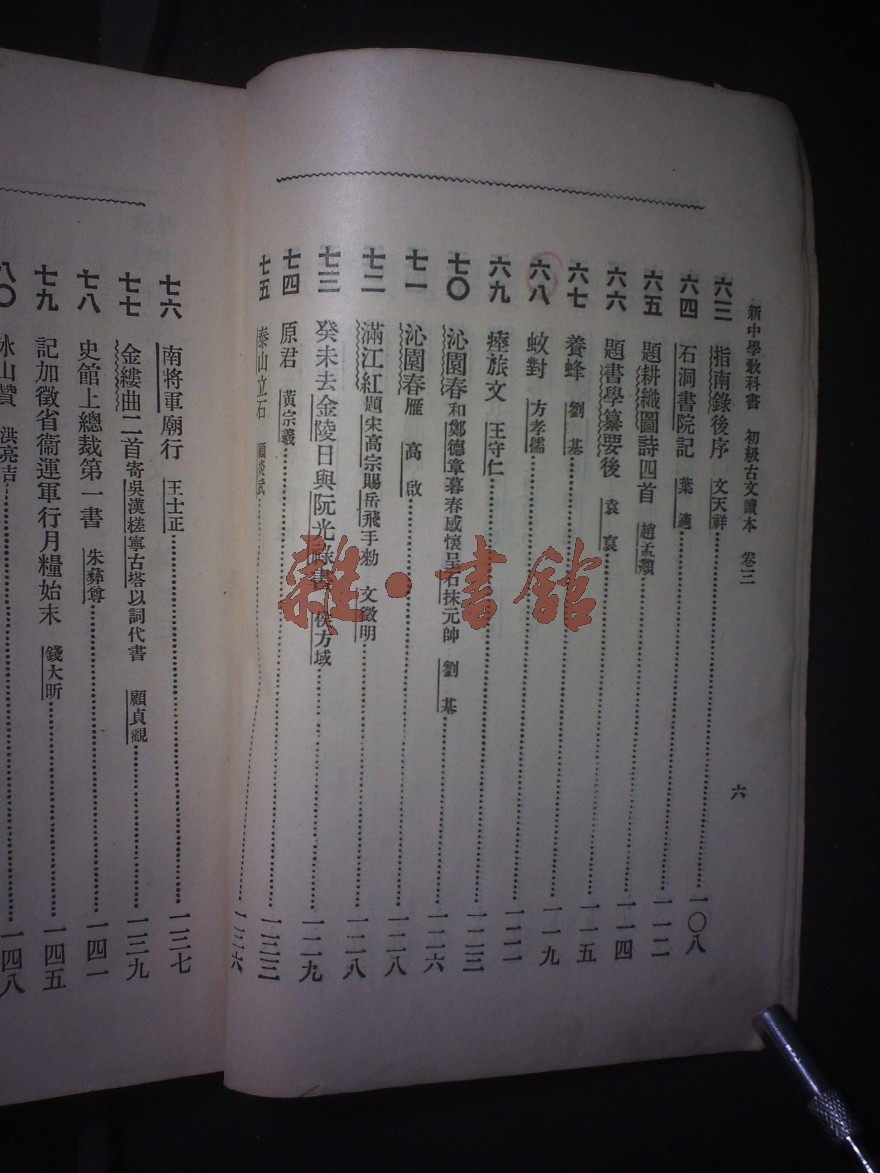 新中學教科書 初級古文讀本 卷三 六
六三 指南錄後序 文天祥 一〇八
六四 石洞書院記 葉適 一一二
六五 題耕織圖詩四首 趙孟頫 一一四
六六 題書學纂要後 袁裒 一一五
六七 養蜂 劉基 一一九
六八 蚊對 方孝儒 一二一
六九 瘞旅文 王守仁 一二三
七〇 沁園春和鄭德章暮春感懷呈石抹元帥 劉基 一二六
七一 沁園春雁 高啟 一二八
七二 滿江紅題宋高宗賜岳飛手勑 文徵明 一二八
七三 癸未去金陵日與阮光祿書 侯方域 一二九
七四 原君 黃宗羲 一三三
七五 泰山立石 顧炎武 一三六
七六 南將軍廟行 王士正 一三七
七七 金縷曲二首寄吳漢槎寧古塔以詞代書 顧貞觀 一三九
七八 史館上總裁第一書 朱彝尊 一四一
七九 記加徵省衞運軍行月糧始末 錢大昕 一四五
八〇 冰山贊 洪亮吉 一四八
雜·書館